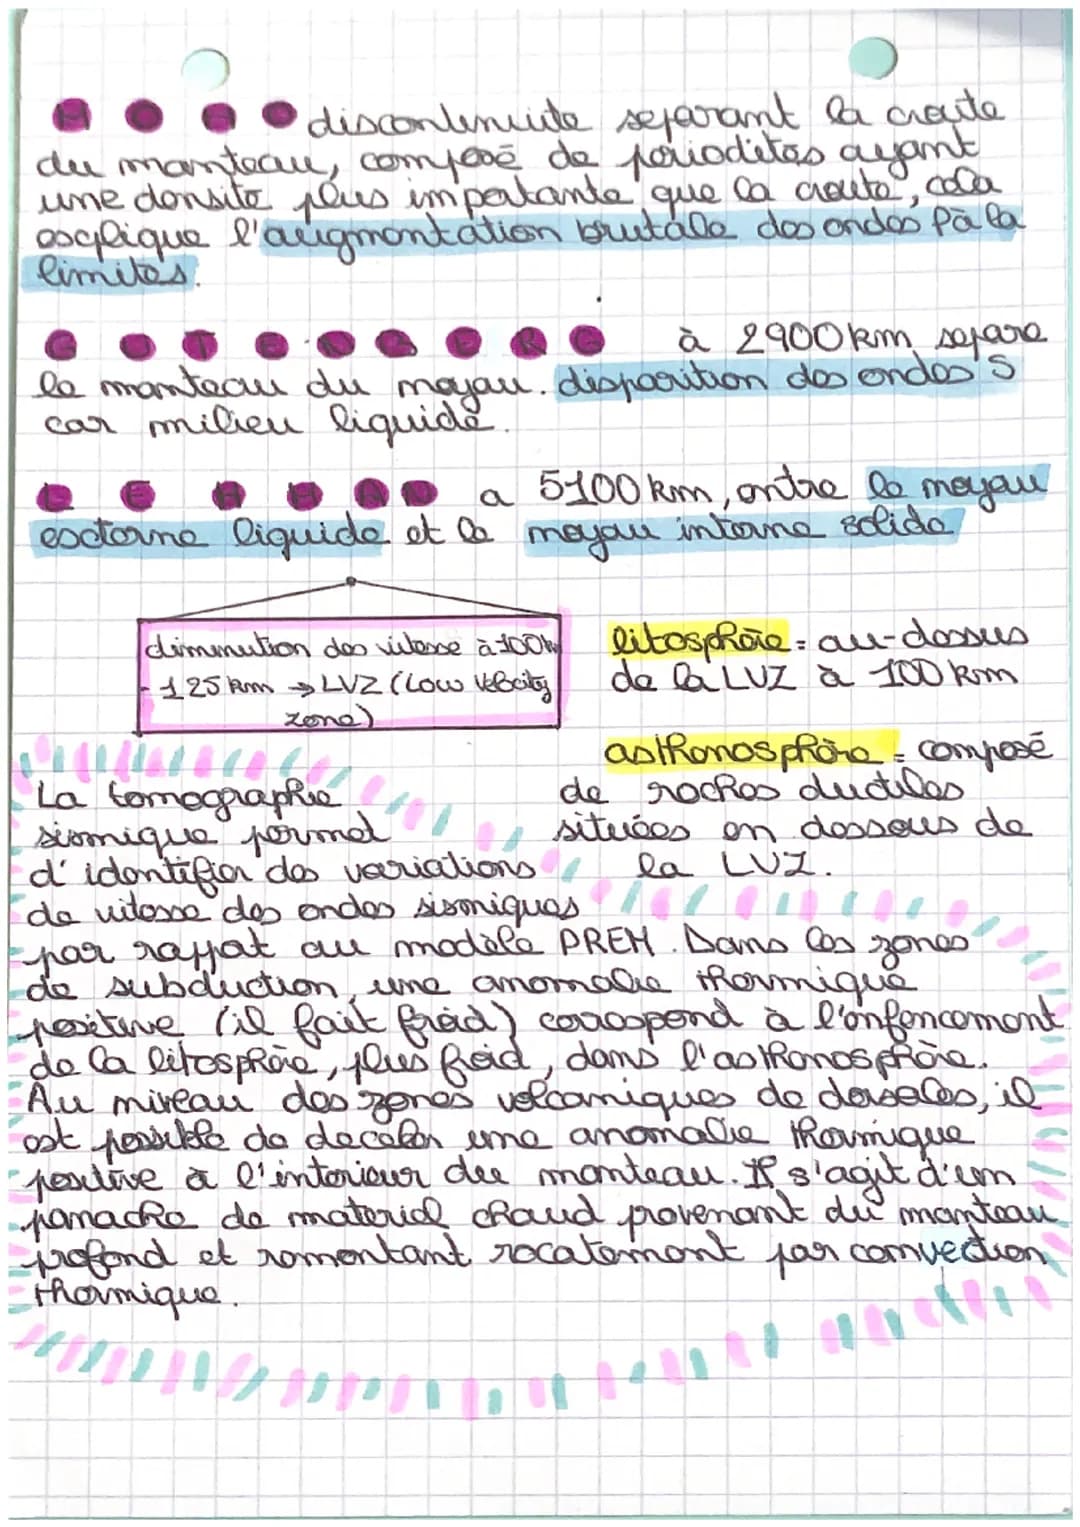 MOHO discontinuite separant la croute
du manteau, composé de périoditas ayant
une densite plus importante que la croute, cela
esxplique l'augmontation brutale des ondes Pà la
limites.
GUTENBERG à 2900 km separe
le manteau du noyau. disparition des ondes S
car milieu liquide.
LEHMAN a 5100 km, entre le noyau
esxterne liquide et le noyau interne solide
diminution des vitesse à 100km
- 125 km → LVZ (Low Velocity
zone)
litosphère = au-dessus
de la LVZ à 100 km
asthonosphère = composé
de roches ductiles
situées en dessous de
la LVZ.
La tomographie
sismique permet
d'identifier des variations
de vitesse des ondes sismiques
par rapport au modèle PREM. Dans les zones
de subduction, une anomalie thermique
positive (il fait froid) correspond à l'enfoncement
de la litosphère, plus froid, dans l'asthonosphère.
Au niveau des zones volcaniques de dorsales, il
est possible de deceler une anomalie thermique
positive à l'interieur du manteau. Il s'agit d'un
panache de materiel chaud provenant du manteau
profond et remontant rocatement par convection
thermique.